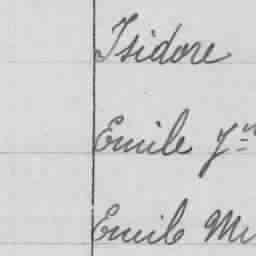 Isidore
Emile Jn
Emile